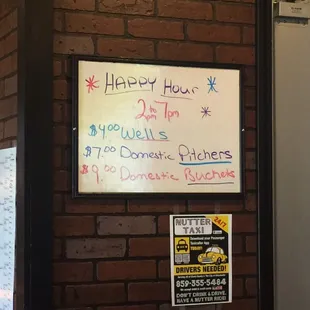 HAPPY HOUR
2pm to 7pm
$4.00 Wells
$7.00 Domestic Pitchers
$9.00 Domestic Buckets
NUTTER
TAXI
24/7
TODAY!
DRIVERS NEEDED!
859-355-5484
DON'T DRINK & DRIVE
HAVE A NUTTER RIDE